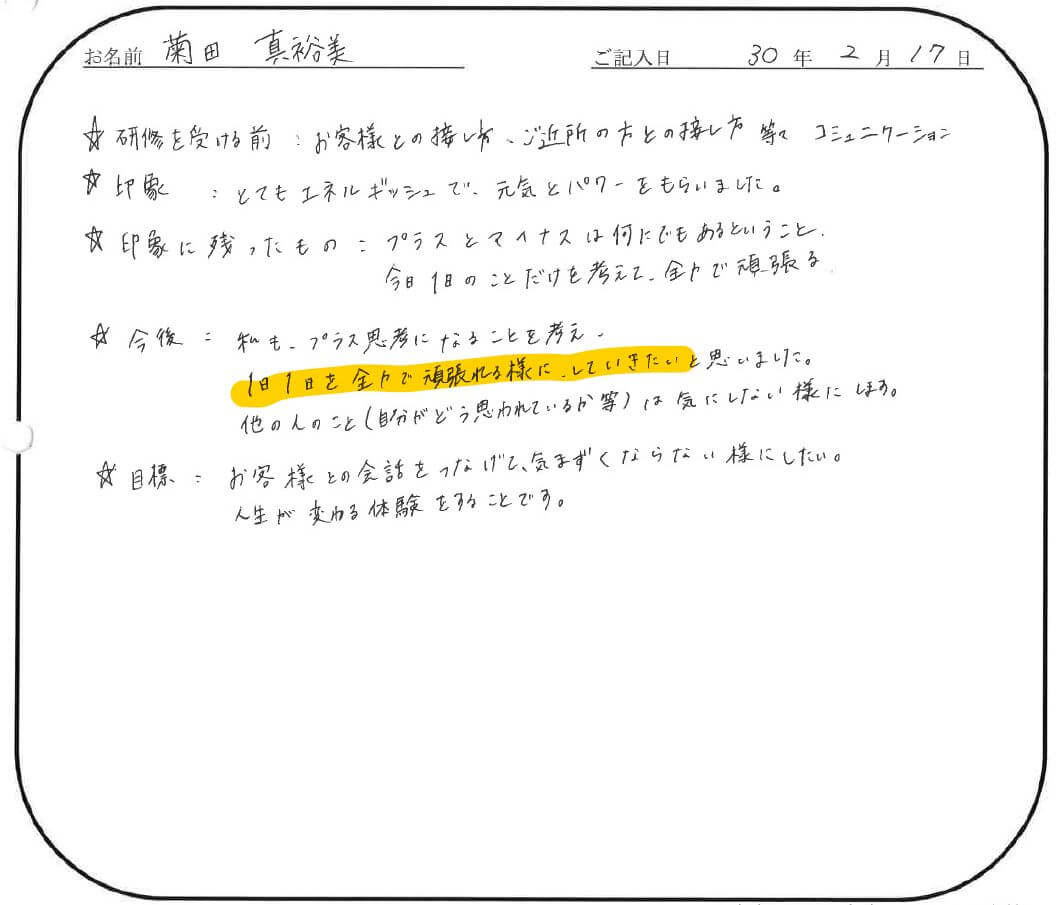 お名前 菊田 真裕美 ご記入日 30年 2月 17日
☆ 研修を受ける前 : お客様との接し方、ご近所の方との接し方 等々 コミュニケーション
☆ 印象 : とてもエネルギッシュで、元気とパワーをもらいました。
☆ 印象に残ったもの : プラスとマイナスは何にでもあるということ、
今日1日のことだけを考えて、全力で頑張る
☆ 今後 : 私も、プラス思考になることを考え、
1日1日を全力で頑張れる様に、していきたいと思いました。
他の人のこと(自分がどう思われているか等)は気にしない様にします。
☆ 目標 : お客様との会話をつなげて、気まずくならない様にしたい。
人生が変わる体験をすることです。